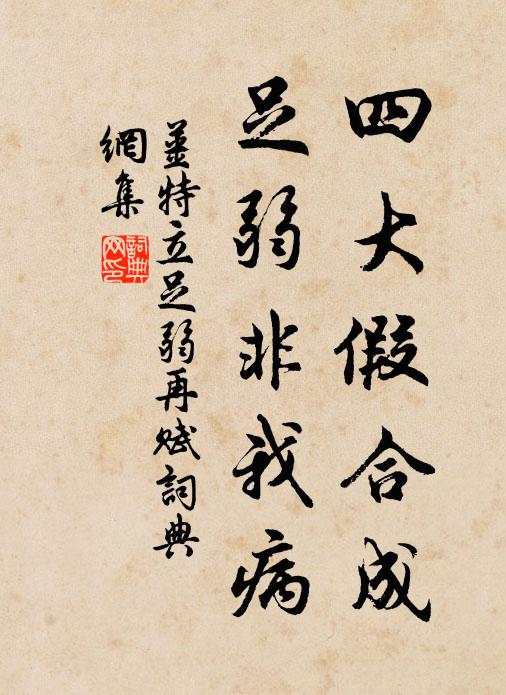 四大假合成
足弱非我病
姜特立足弱再赋詞典
網集
詞典
网印